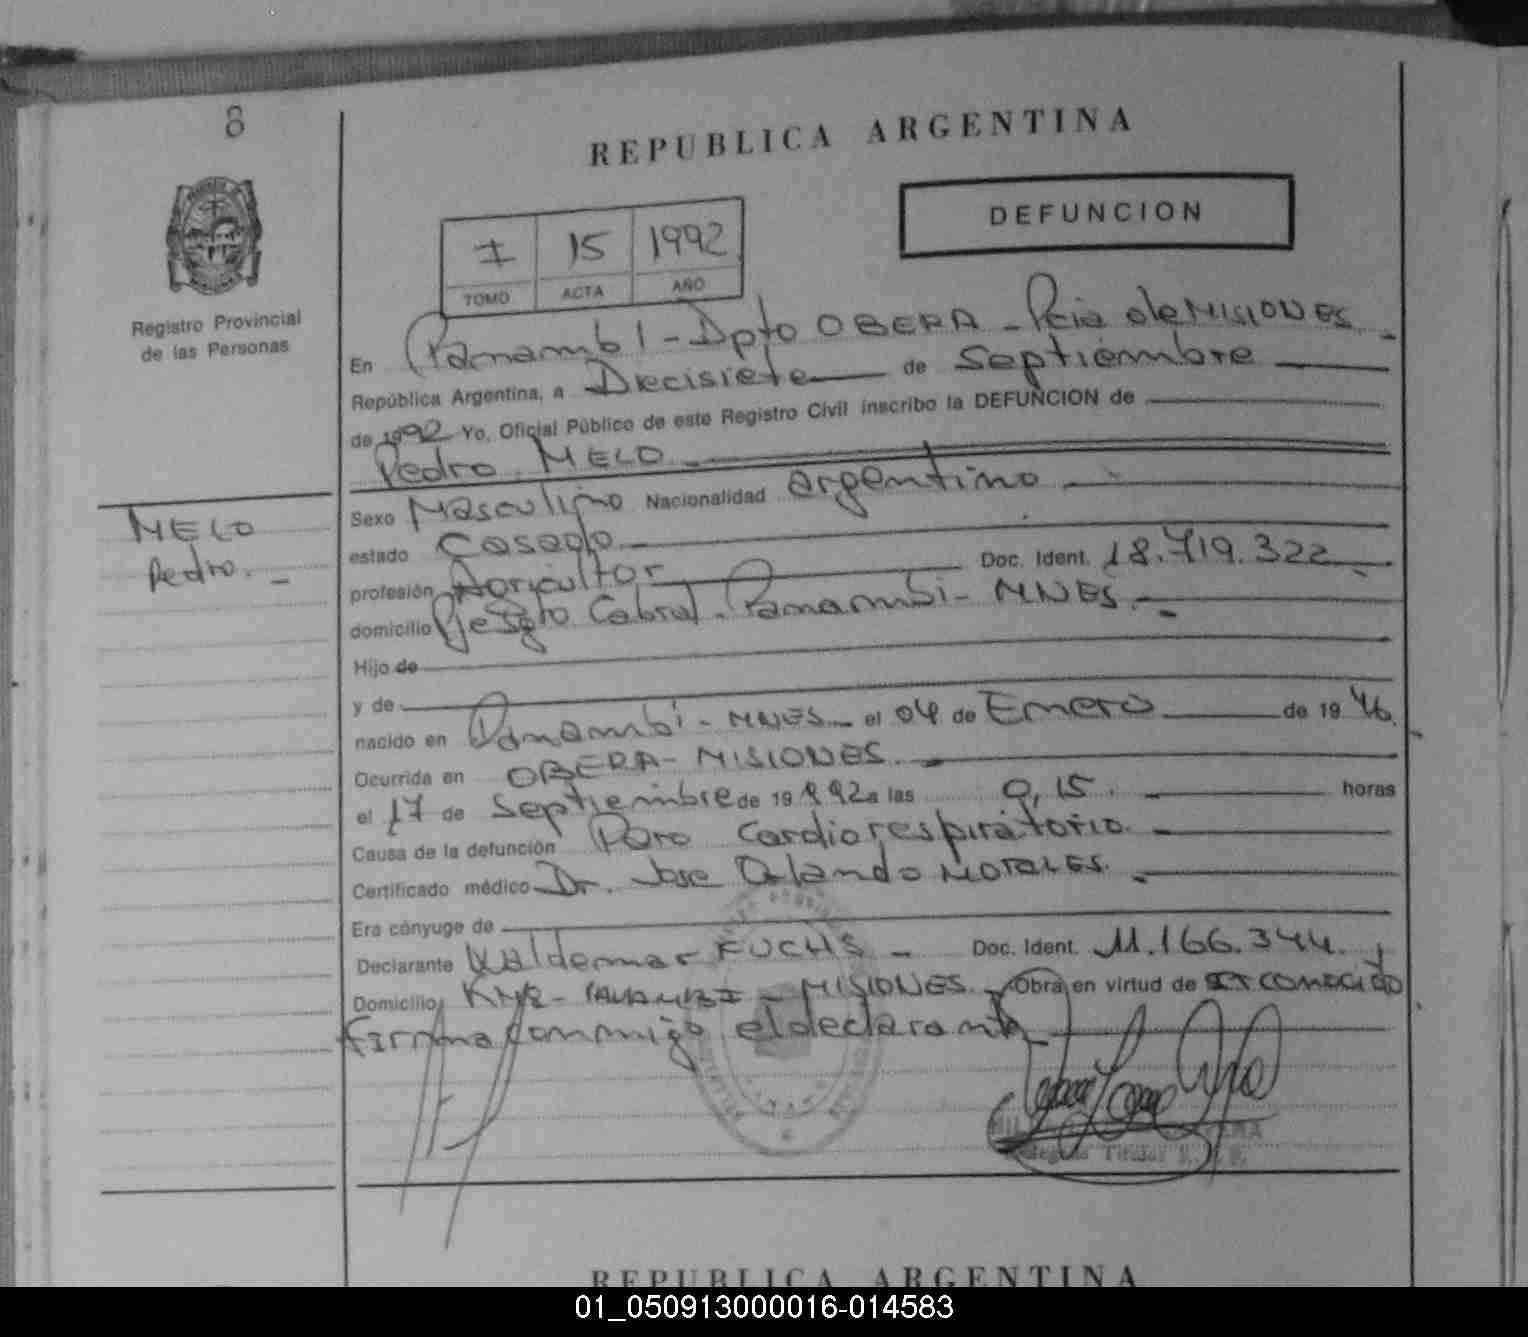 8
REPUBLICA ARGENTINA
DEFUNCION
I 15 1992
TOMO ACTA AÑO
Registro Provincial
de las Personas
En Panambi - Dpto OBERA - Pcia de MISIONES
República Argentina, a Diecisiete de Septiembre
de 1992 Yo, Oficial Público de este Registro Civil inscribo la DEFUNCION de
Pedro MELO
MELO
Pedro.
Sexo Masculino Nacionalidad argentino
estado Casado
profesión Agricultor Doc. Ident. 18.719.322
domicilio Pje Sgto Cabral. Panambi - MNES.
Hijo de
y de
nacido en Panambi - MNES el 04 de Enero de 1946.
Ocurrida en OBERA - MISIONES.
el 17 de Septiembre de 19992 a las 0,15. horas
Causa de la defunción Paro Cardiorespiratorio.
Certificado médico Dr. Jose Orlando MORALES.
Era cónyuge de
Declarante Waldemar FUCHS - Doc. Ident. 11.166.344. y
Domicilio KM2 - PANAMBI - MISIONES. Obra en virtud de conocido
firma conmigo el declarante
Titular
REPUBLICA ARGENTINA
01_050913000016-014583